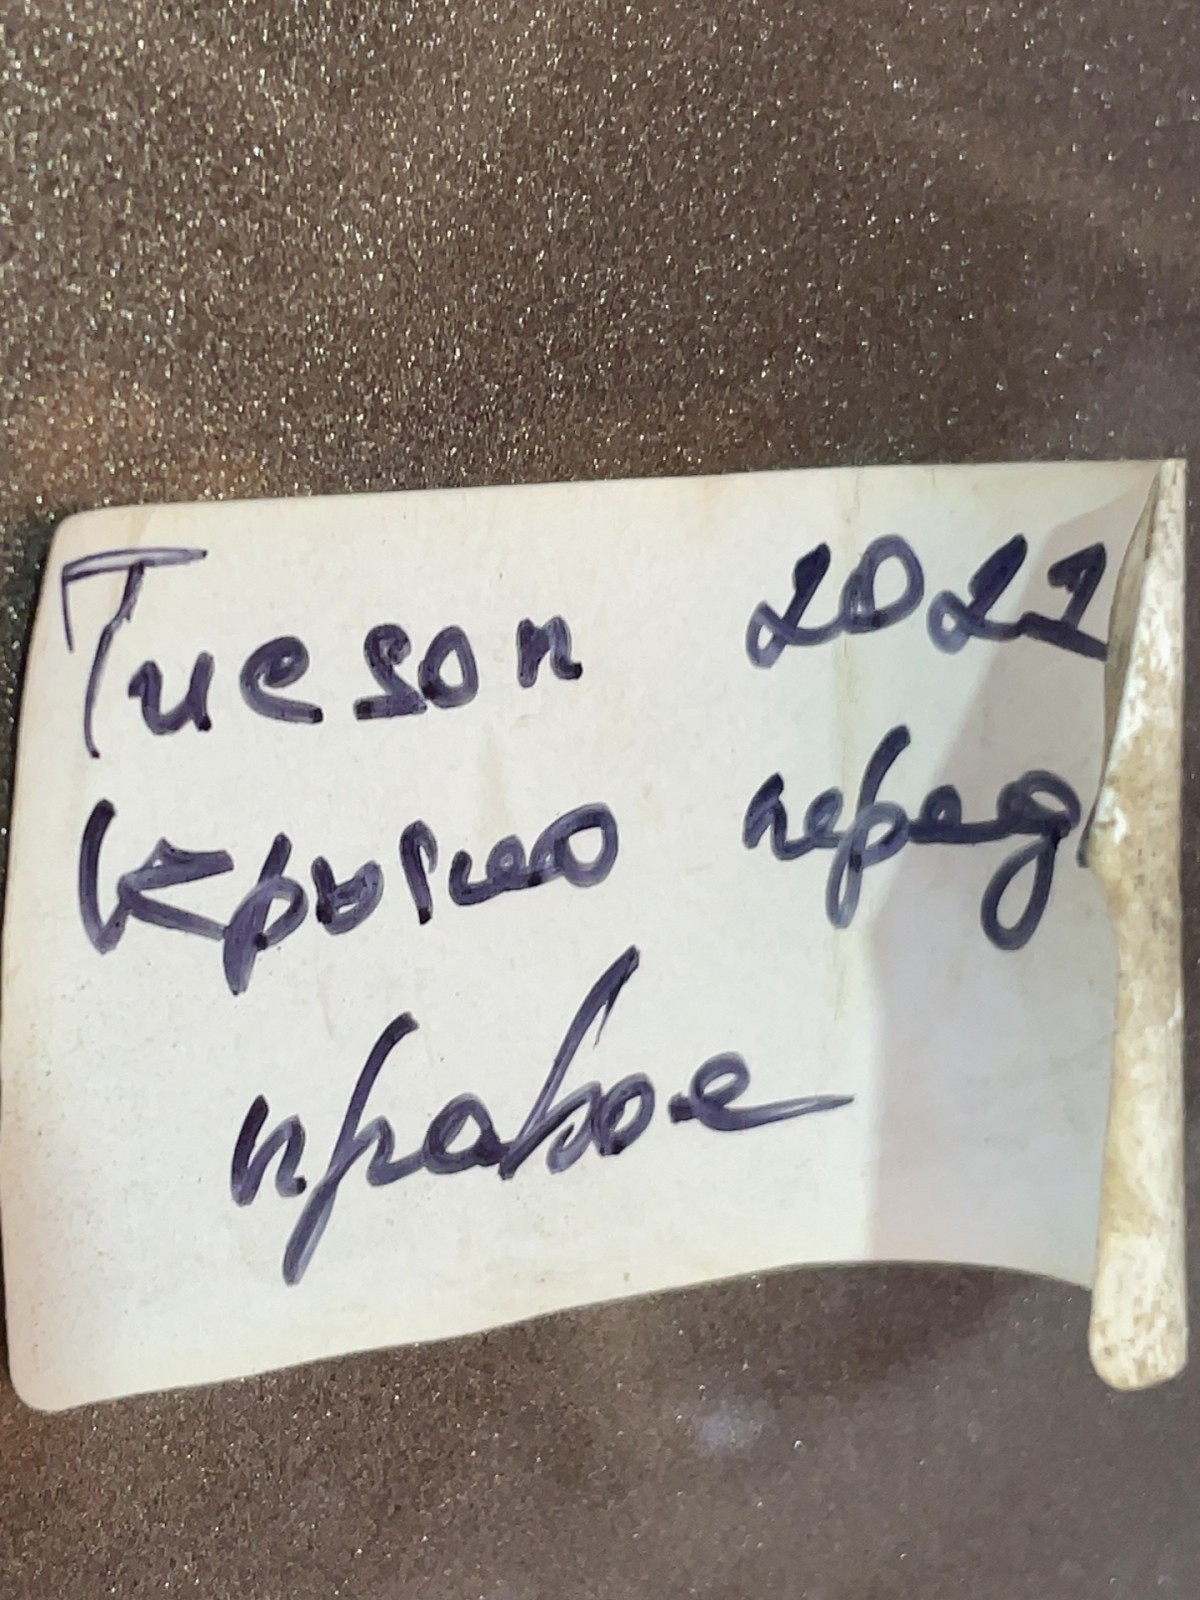 Tucson 2021
крыло перед
правое